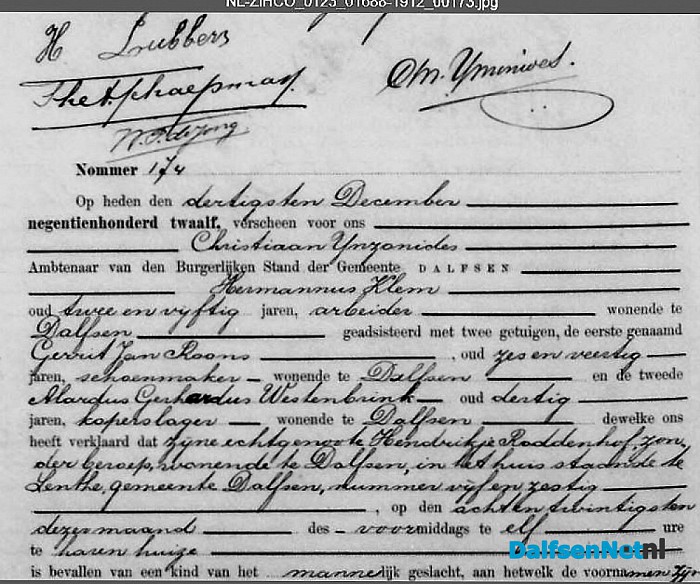 NL-ZIHCO_0123_01688-1912_00173.jpg
H Lubbers
W. P. de Jong
Nommer 174
Op heden den dertigsten December
negentienhonderd twaalf, verscheen voor ons
Christiaan Ynzonides
Ambtenaar van den Burgerlijken Stand der Gemeente DALFSEN
Hermannus Klem
oud twee en vijftig jaren, arbeider wonende te
Dalfsen geadsisteerd met twee getuigen, de eerste genaamd
Gerrit Jan Roons, oud zes en veertig
jaren, schoenmaker wonende te Dalfsen en de tweede
Alardus Gerhardus Westenbrink oud dertig
jaren, koperslager wonende te Dalfsen dewelke ons
heeft verklaard dat zijne echtgenoote Hendrikje Roddenhof, zon
der beroep, wonende te Dalfsen, in het huis staande te
Lenthe, gemeente Dalfsen, nummer vijf en zestig
, op den achtentwintigsten
dezer maand des voormiddags te elf ure
te haren huize
DalfsenNet.nl
is bevallen van een kind van het mannelijk geslacht, aan hetwelk de voornamen zijn